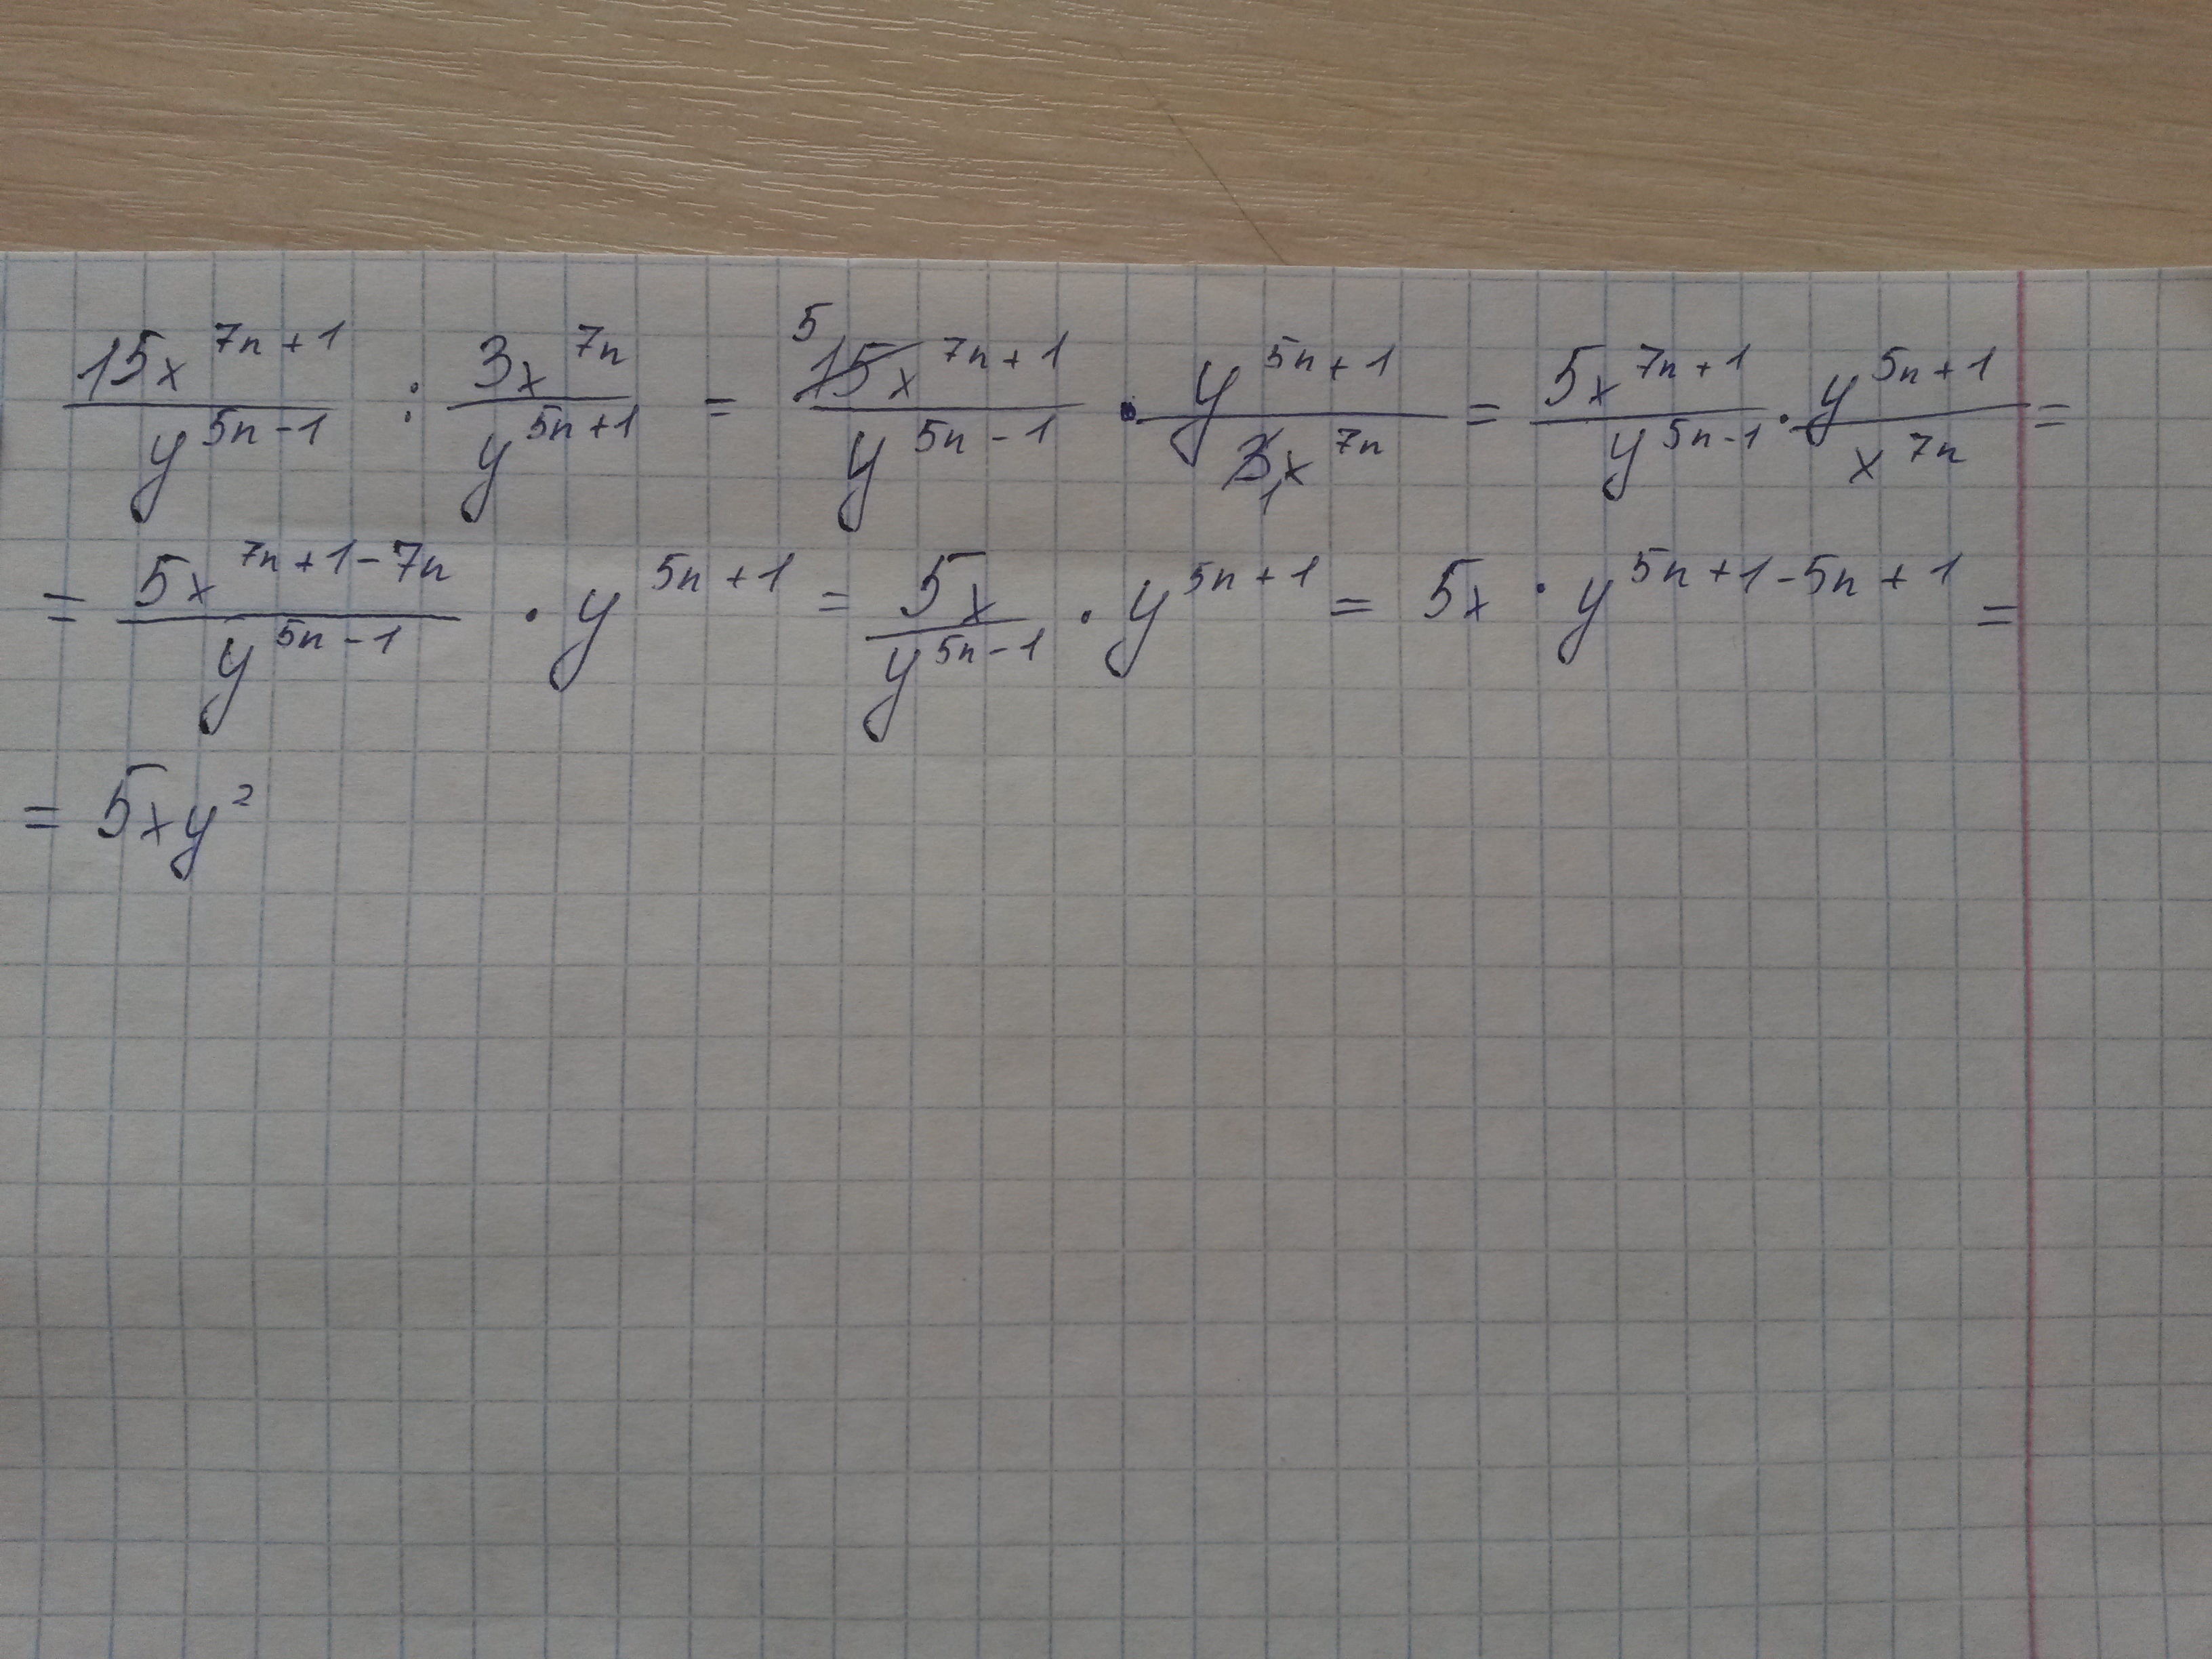 \frac{15x^{7n+1}}{y^{5n-1}} : \frac{3x^{7n}}{y^{5n+1}} = \frac{\overset{5}{\cancel{15}}x^{7n+1}}{y^{5n-1}} \cdot \frac{y^{5n+1}}{\underset{1}{\cancel{3}}x^{7n}} = \frac{5x^{7n+1}}{y^{5n-1}} \cdot \frac{y^{5n+1}}{x^{7n}} =
= \frac{5x^{7n+1-7n}}{y^{5n-1}} \cdot y^{5n+1} = \frac{5x}{y^{5n-1}} \cdot y^{5n+1} = 5x \cdot y^{5n+1-5n+1} =
= 5xy^2